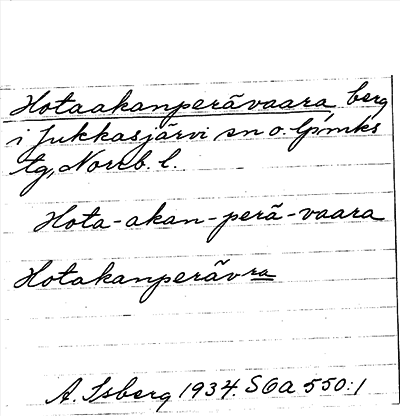 Hotaakanperävaara, berg
i Jukkasjärvi sn o. lpmks
tg, Norrb. l.
Hota-akan-perä-vaara
Hotakanperävra
A. Isberg 1934. SOA 550:1